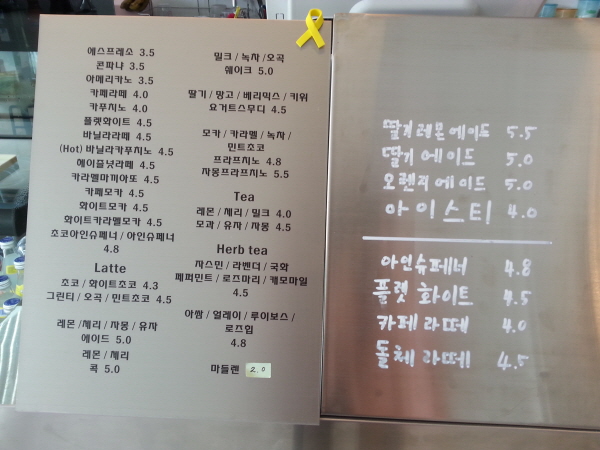 에스프레소 3.5
콘파냐 3.5
아메리카노 3.5
카페라떼 4.0
카푸치노 4.0
플렛화이트 4.5
바닐라라떼 4.5
(Hot) 바닐라카푸치노 4.5
헤이즐넛라떼 4.5
카라멜마끼아또 4.5
카페모카 4.5
화이트모카 4.5
화이트카라멜모카 4.5
초코아인슈페너 / 아인슈페너
4.8
Latte
초코 / 화이트초코 4.3
그린티 / 오곡 / 민트초코 4.5
레몬 / 체리 / 자몽 / 유자
에이드 5.0
레몬 / 체리
콕 5.0
밀크 / 녹차 / 오곡
쉐이크 5.0
딸기 / 망고 / 베리믹스 / 키위
요거트스무디 4.5
모카 / 카라멜 / 녹차 /
민트초코
프라프치노 4.8
자몽프라프치노 5.5
Tea
레몬 / 체리 / 밀크 4.0
모과 / 유자 / 자몽 4.5
Herb tea
자스민 / 라벤더 / 국화
페퍼민트 / 로즈마리 / 캐모마일
4.5
아쌈 / 얼레이 / 루이보스 /
로즈힙
4.8
마들렌 2.0
딸기레몬에이드 5.5
딸기에이드 5.0
오렌지에이드 5.0
아이스티 4.0
아인슈페너 4.8
플렛 화이트 4.5
카페 라떼 4.0
돌체 라떼 4.5